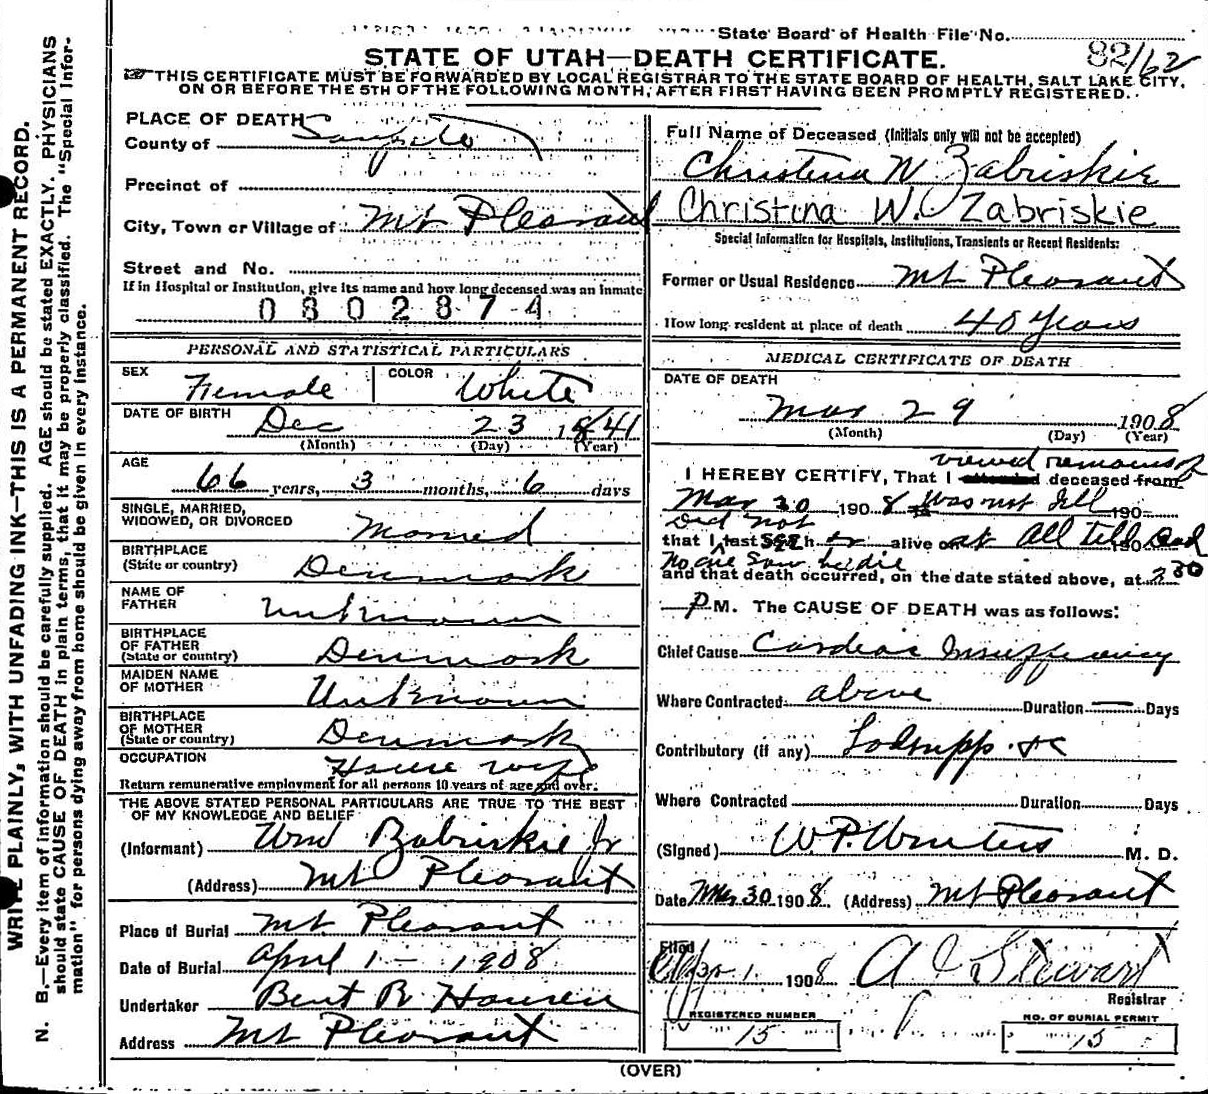 State Board of Health File No.
82/162
STATE OF UTAH—DEATH CERTIFICATE.
THIS CERTIFICATE MUST BE FORWARDED BY LOCAL REGISTRAR TO THE STATE BOARD OF HEALTH, SALT LAKE CITY,
ON OR BEFORE THE 5TH OF THE FOLLOWING MONTH, AFTER FIRST HAVING BEEN PROMPTLY REGISTERED.
WRITE PLAINLY, WITH UNFADING INK—THIS IS A PERMANENT RECORD.
N. B.—Every item of information should be carefully supplied. AGE should be stated EXACTLY. PHYSICIANS
should state CAUSE OF DEATH in plain terms, that it may be properly classified. The "Special Infor-
mation" for persons dying away from home should be given in every instance.
PLACE OF DEATH
County of Sanpete
Precinct of
City, Town or Village of Mt Pleasant
Street and No.
If in Hospital or Institution, give its name and how long deceased was an Inmate
0802874
PERSONAL AND STATISTICAL PARTICULARS
SEX Female COLOR White
DATE OF BIRTH Dec 23 1841
(Month) (Day) (Year)
AGE
66 years, 3 months, 6 days
SINGLE, MARRIED,
WIDOWED, OR DIVORCED Married
BIRTHPLACE
(State or country) Denmark
NAME OF
FATHER Unknown
BIRTHPLACE
OF FATHER
(State or country) Denmark
MAIDEN NAME
OF MOTHER Unknown
BIRTHPLACE
OF MOTHER
(State or country) Denmark
OCCUPATION House wife
Return remunerative employment for all persons 10 years of age and over.
THE ABOVE STATED PERSONAL PARTICULARS ARE TRUE TO THE BEST
OF MY KNOWLEDGE AND BELIEF
(Informant) Wm Zabriskie Jr
(Address) Mt Pleasant
Place of Burial Mt Pleasant
Date of Burial April 1 - 1908
Undertaker Bent R Hansen
Address Mt Pleasant
Full Name of Deceased (Initials only will not be accepted)
Christina W Zabriskie
Christina W. Zabriskie
Special Information for Hospitals, Institutions, Transients or Recent Residents:
Former or Usual Residence Mt Pleasant
How long resident at place of death 40 years
MEDICAL CERTIFICATE OF DEATH
DATE OF DEATH
Mar 29 1908
(Month) (Day) (Year)
viewed remains of
I HEREBY CERTIFY, That I attended deceased from
Mar 30 1908 to Was not Ill 190
Did not
that I last see her alive on at All till Dead 190
No one Saw her die
and that death occurred, on the date stated above, at 2 30
P M. The CAUSE OF DEATH was as follows:
Chief Cause Cardiac Insufficiency
Where Contracted above Duration — Days
Contributory (if any)
Where Contracted Duration Days
(Signed) W. P. Winters M. D.
Date Mar 30 1908. (Address) Mt Pleasant
Filed
Apr 1 1908 A C Steward
Registrar
REGISTERED NUMBER
15
NO. OF BURIAL PERMIT
15
(OVER)